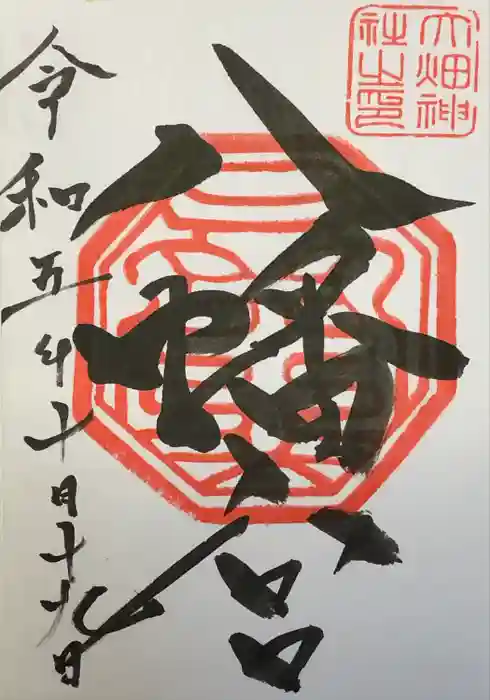 大畑神
社之璽
八幡宮
令和五年十一月十九日